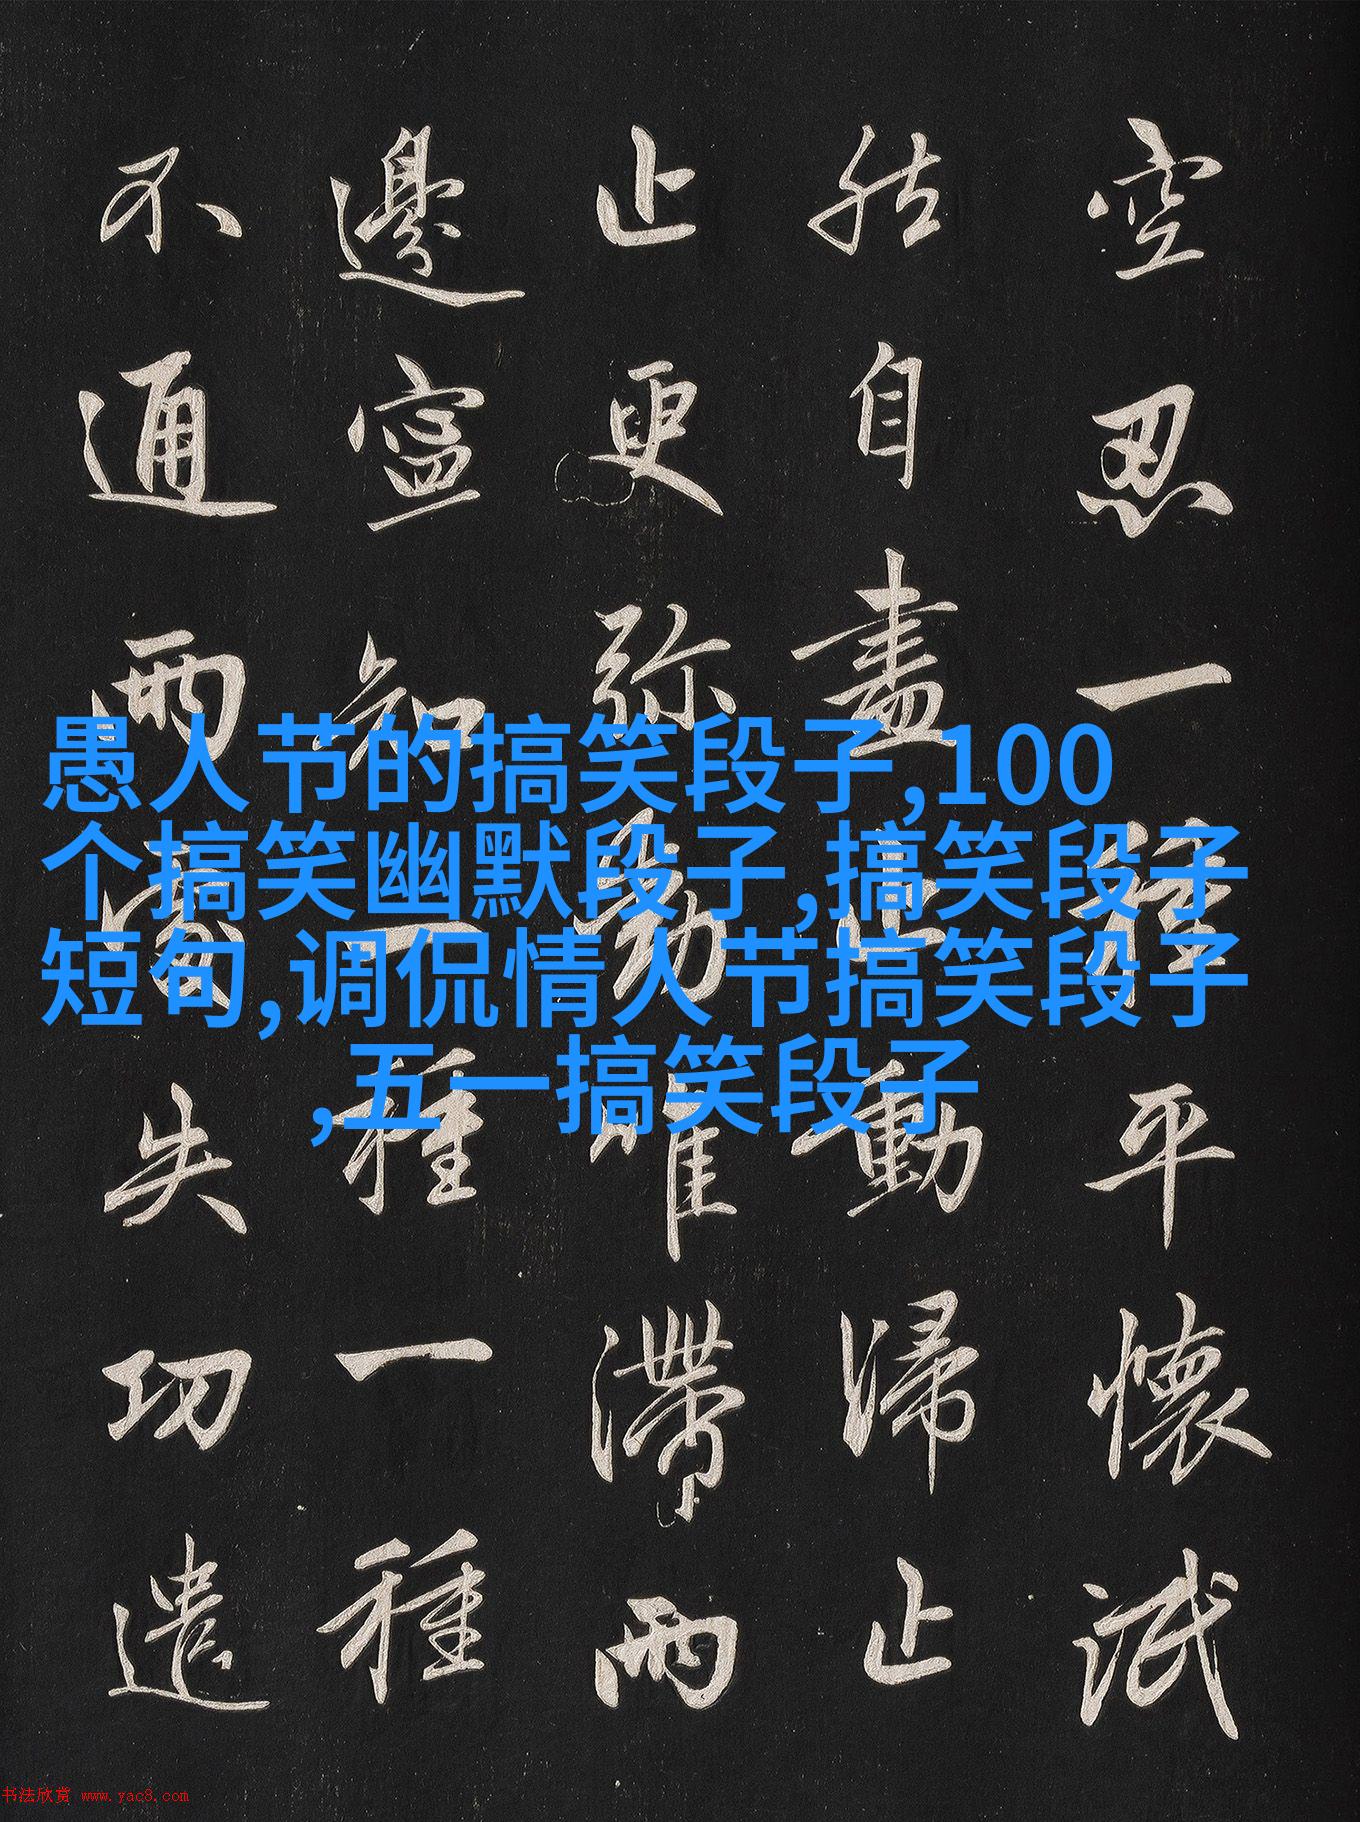 空忍一種平懷泯
然自盡止動歸止
止更弥動唯滯兩
邊寍知一種一種
不通兩處失功遣
愚人节的搞笑段子,100
个搞笑幽默段子,搞笑段子
短句,调侃情人节搞笑段子
,五一搞笑段子
书法欣赏 www.yac8.com